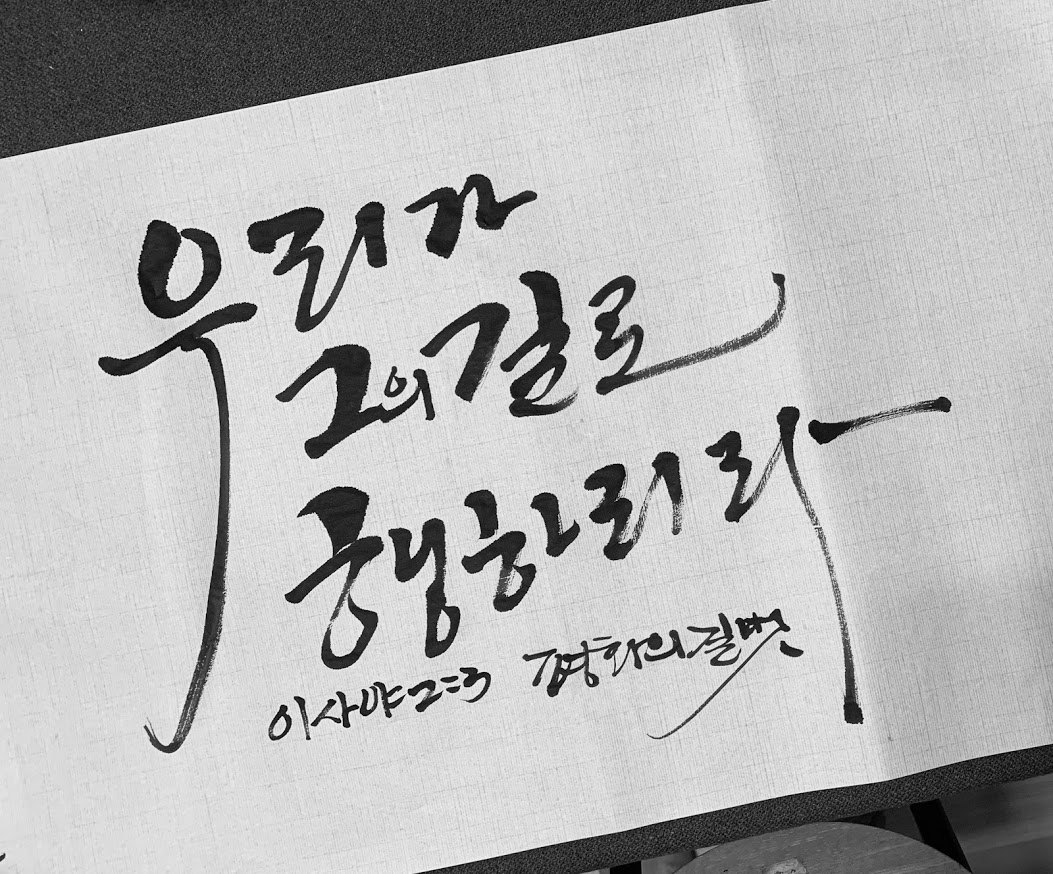 우리가
그의 길로
행하리라
이사야 2:3 평화의 길벗